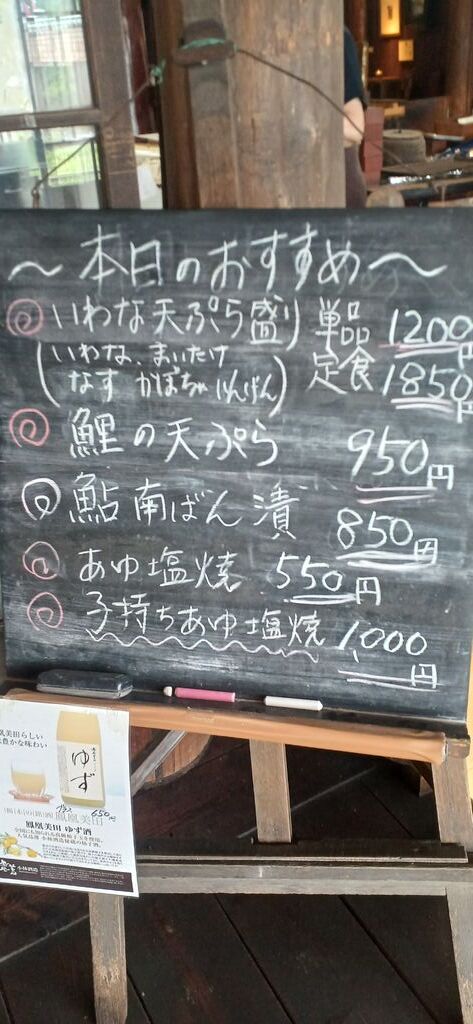 ～本日のおすすめ～
いわな天ぷら盛り 単品 1200円
(いわな、まいたけ 定食 1850円
なす かぼちゃ いんげん)
鯉の天ぷら 950円
鮎南ばん漬 850円
あゆ塩焼 550円
子持ちあゆ塩焼 1,000円
鳳凰美田らしい
豊かな味わい
ゆず
グラス 650円
鳳凰美田
鳳凰美田 ゆず酒
小林酒造